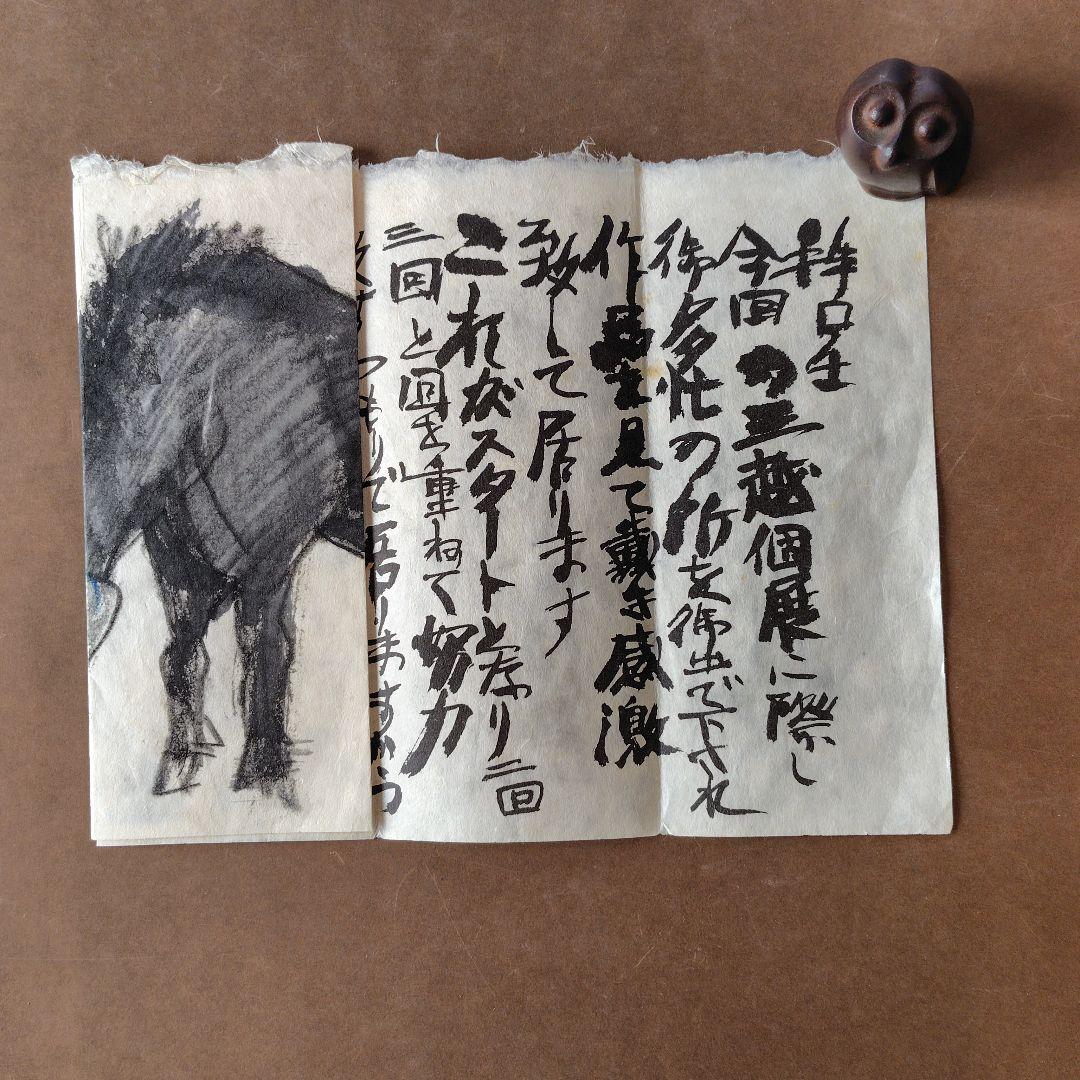 拝啓
今回の三越個展に際し
御多忙の所を御出で下され
作品を見て戴き感激
致して居ります
これがスタートと思い二回
三回と回を重ねて努力
つもりで居りますから